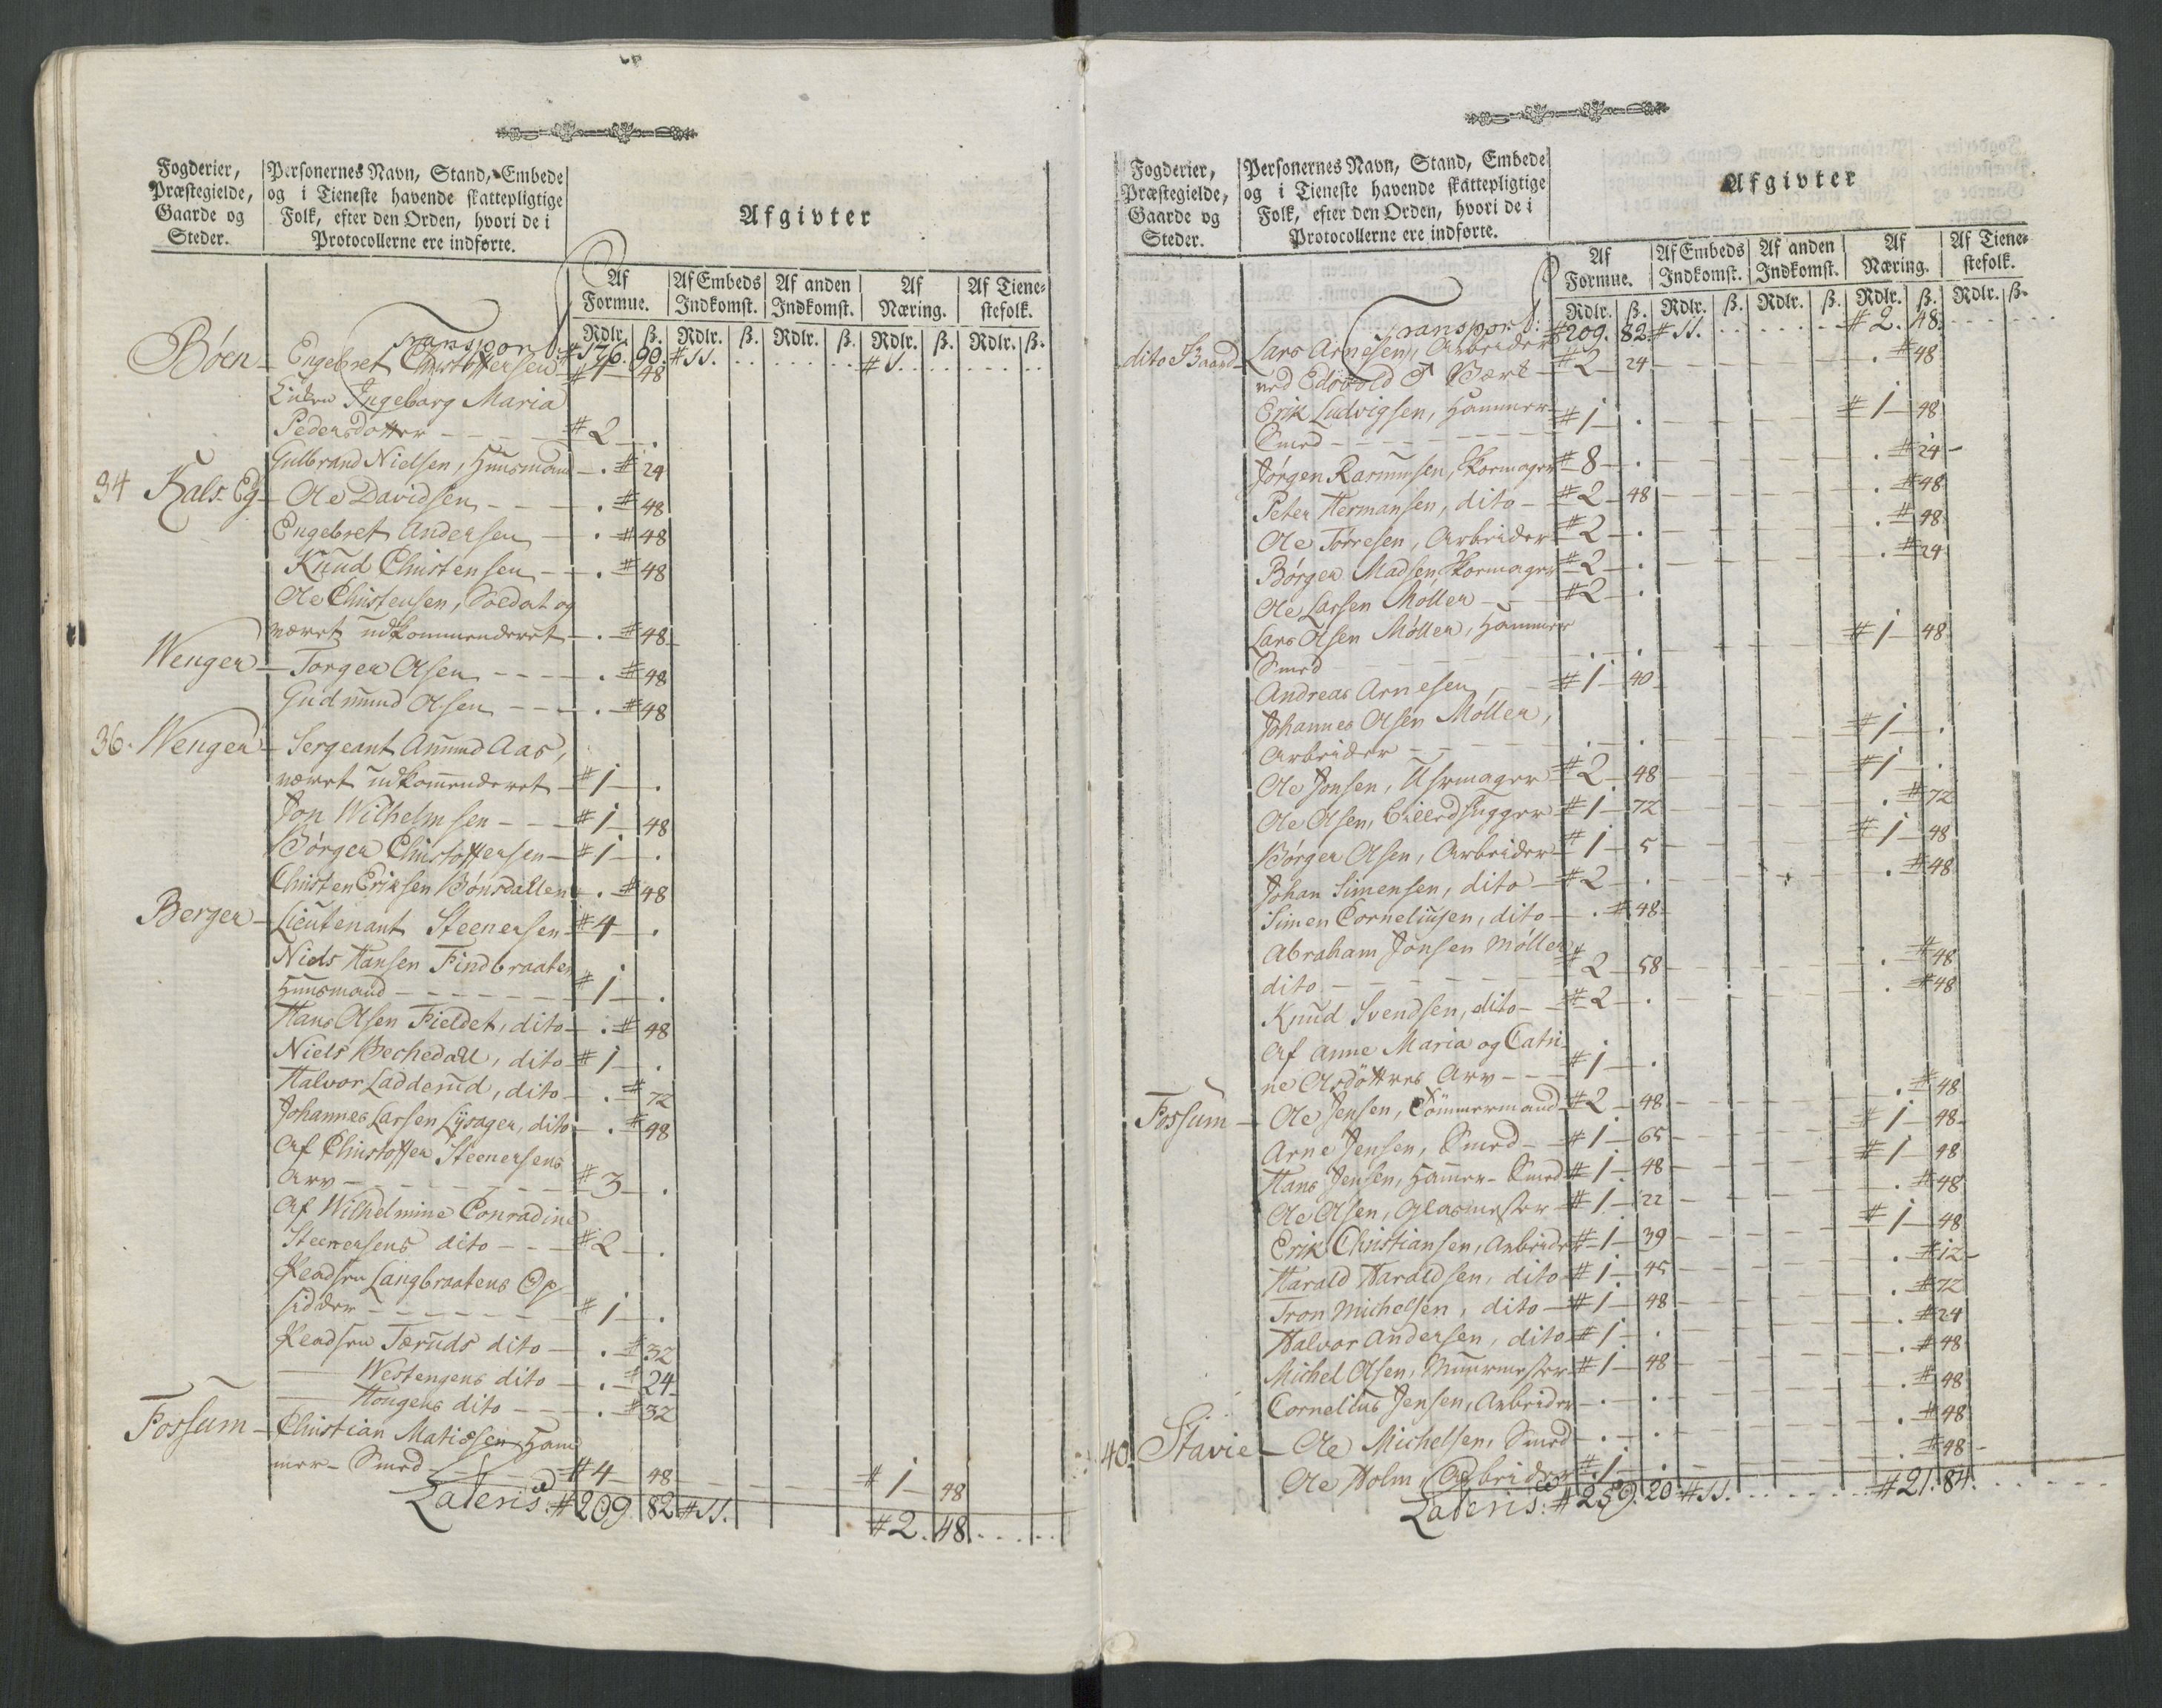 Fogderier,
Præstegielde,
Gaarde og
Steder.
Personernes Navn, Stand, Embede
og i Tieneste havende skattepligtige
Folk, efter den Orden, hvori de i
Protocollerne ere indførte.
Afgivter
Af Formue. Af Embeds Indkomst. Af anden Indkomst. Af Næring. Af Tiene=stefolk.
Rdlr. ß. Rdlr. ß. Rdlr. ß. Rdlr. ß. Rdlr. ß.
Transport # 176. 90. # 11. # 1.
Bøen - Engebret Christoffersen # 1 - 48
Enken Ingeborg Maria
Pedersdatter - # 2 - .
Gulbrand Nielsen, Huusmand - . # 24
34 Kals. Eg - Ole Davidsen - . # 48
Engebret Andersen - . # 48
Knud Christensen - . # 48
Ole Christensen, Soldat og
været udkommenderet - . # 48
Wengen - Torger Olsen - . # 48
Gudmund Olsen - . # 48
36. Wengen - Sergeant Amund Aas,
været udkommenderet - # 1 - .
Jon Wilhelmsen - # 1 - 48
Børger Christoffersen - # 1 - .
Christen Eriksen Bønsdallen - . # 48
Berger - Lieutenant Steenersen # 4 - .
Niels Hansen Findbraaten
Huusmand - # 1 - .
Hans Olsen Fieldet, dito - . # 48
Niels Bechedall, dito # 1 - .
Halvor Ladderud, dito - . # 72
Johannes Larsen Lysager, dito - . # 48
Af Christoffer Steenersens
Arv - # 3 - .
Af Wilhelmine Conradine
Steenersens dito - # 2 - .
Pladsen Langbraatens Op
sidder - # 1 - .
Pladsen Tæruds dito - . # 32
Westengens dito - . # 24
Hougens dito - . # 32
Fossum - Christian Matisen Ham
mer - Smed # 4 - 48 # 1 - 48
Lateris: # 209. 82 # 11. # 2. 48.
Fogderier,
Præstegielde,
Gaarde og
Steder.
Personernes Navn, Stand, Embede
og i Tieneste havende skattepligtige
Folk, efter den Orden, hvori de i
Protocollerne ere indførte.
Afgivter
Af Formue. Af Embeds Indkomst. Af anden Indkomst. Af Næring. Af Tiene=stefolk.
Rdlr. ß. Rdlr. ß. Rdlr. ß. Rdlr. ß. Rdlr. ß.
Transport: # 209. 82. # 11. # 2. 48.
dito Lars Arnesen, Arbeider
ved # 2 - 24 . # 48
Erik Ludvigsen, Hammer-
Smed - # 1 - . # 1 - 48
Jørgen Rasmusen, Skomager # 8 - . . # 24 -
Peter Hermansen, dito - # 2 - 48 . # 48
Ole Torresen, Arbeider # 2 - . . # 48
Børger Madsen Skomager # 2 - . . # 24
Ole Larsen Møller - # 2 - .
Lars Olsen Møller, Hammer
Smed - . . # 1 - 48
Andreas Arnesen - # 1 - 40
Johannes Olsen Møller,
Arbeider - . . # 1 - .
Ole Jonsen, Uhrmager # 2 - 48 # 1 - .
Ole Olsen, # 1 - 72 . # 72
Børger Olsen, Arbeider # 1 - 5 # 1 - 48
Johan Simensen, dito - # 2 - . . # 48
Simen Corneliusen, dito - . # 48
Abraham Jonsen Møller
dito - # 2 - 58 . # 48
Knud Svendsen, dito - # 2 - . . # 48
Af Anne Maria og Catri
ne Arv - # 1 - .
Fossum - Ole Jensen, Tømmermand # 2 - 48 . # 48
Arne Jensen, Smed - # 1 - 65 # 1 - 48
Hans Jensen, Hammer-Smed # 1 - 48 # 1 - 48
Ole Olsen, Glasmester # 1 - 22 . # 48
Erik Christiansen, Arbeider # 1 - 39 # 1 - 48
Harald Haraldsen, dito # 1 - 45 . # 12 -
Tron Michelsen, dito - # 1 - 48 . # 72
Halvor Andersen, dito # 1 - . . # 24
Michel Olsen, Muurmester # 1 - 48 . # 48
Cornelius Jensen, Arbeider - . . . # 48
40. Stavie - Ole Michelsen, Smed - . . . # 48
Ole Holm, Arbeider # 1 - . . # 48 -
Lateris: # 259. 20 # 11. # 21. 84.